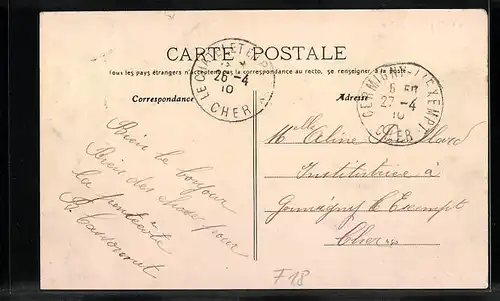 CARTE POSTALE
Tous les pays étrangers n'acceptent pas la correspondance au recto, se renseigner à la Poste.
Correspondance
Adresse
26-4
10
CHER
GERMIGNY-L'EXEMPT
27-4
10
CHER
Bien le bonjour
Bien des choses pour
la
Mlle Aline
Institutrice à
Germigny l'Exempt
Cher
F18